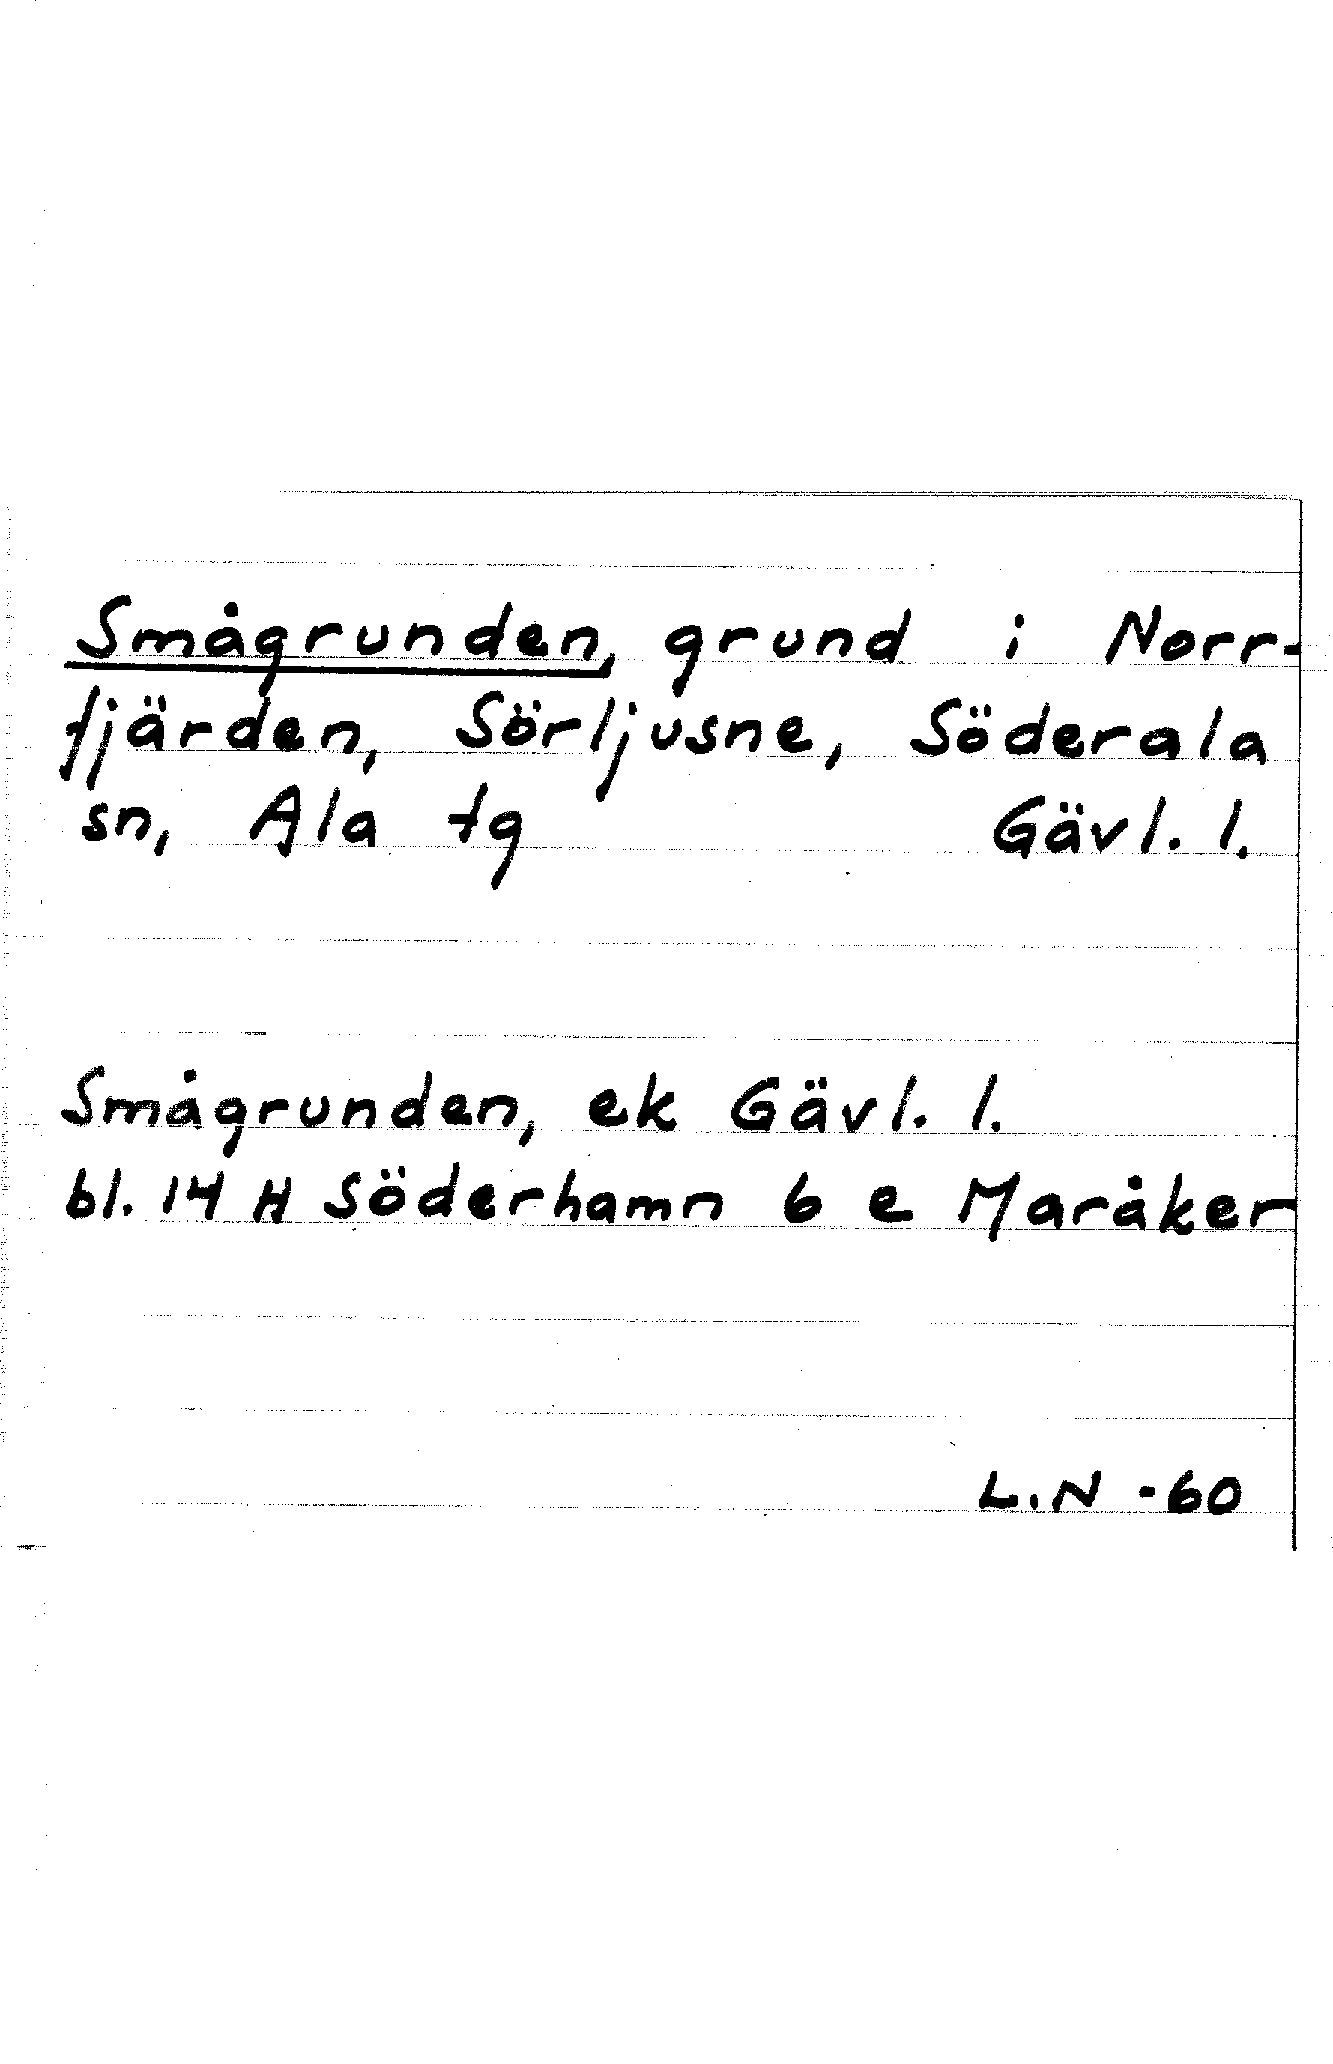 Smågrunden, grund i Norr-
fjärden, Sörljusne, Söderala
sn, Ala tg Gävl. l.
Smågrunden, ek Gävl. l.
bl. 14 H Söderhamn 6 e Maråker
L.N -60